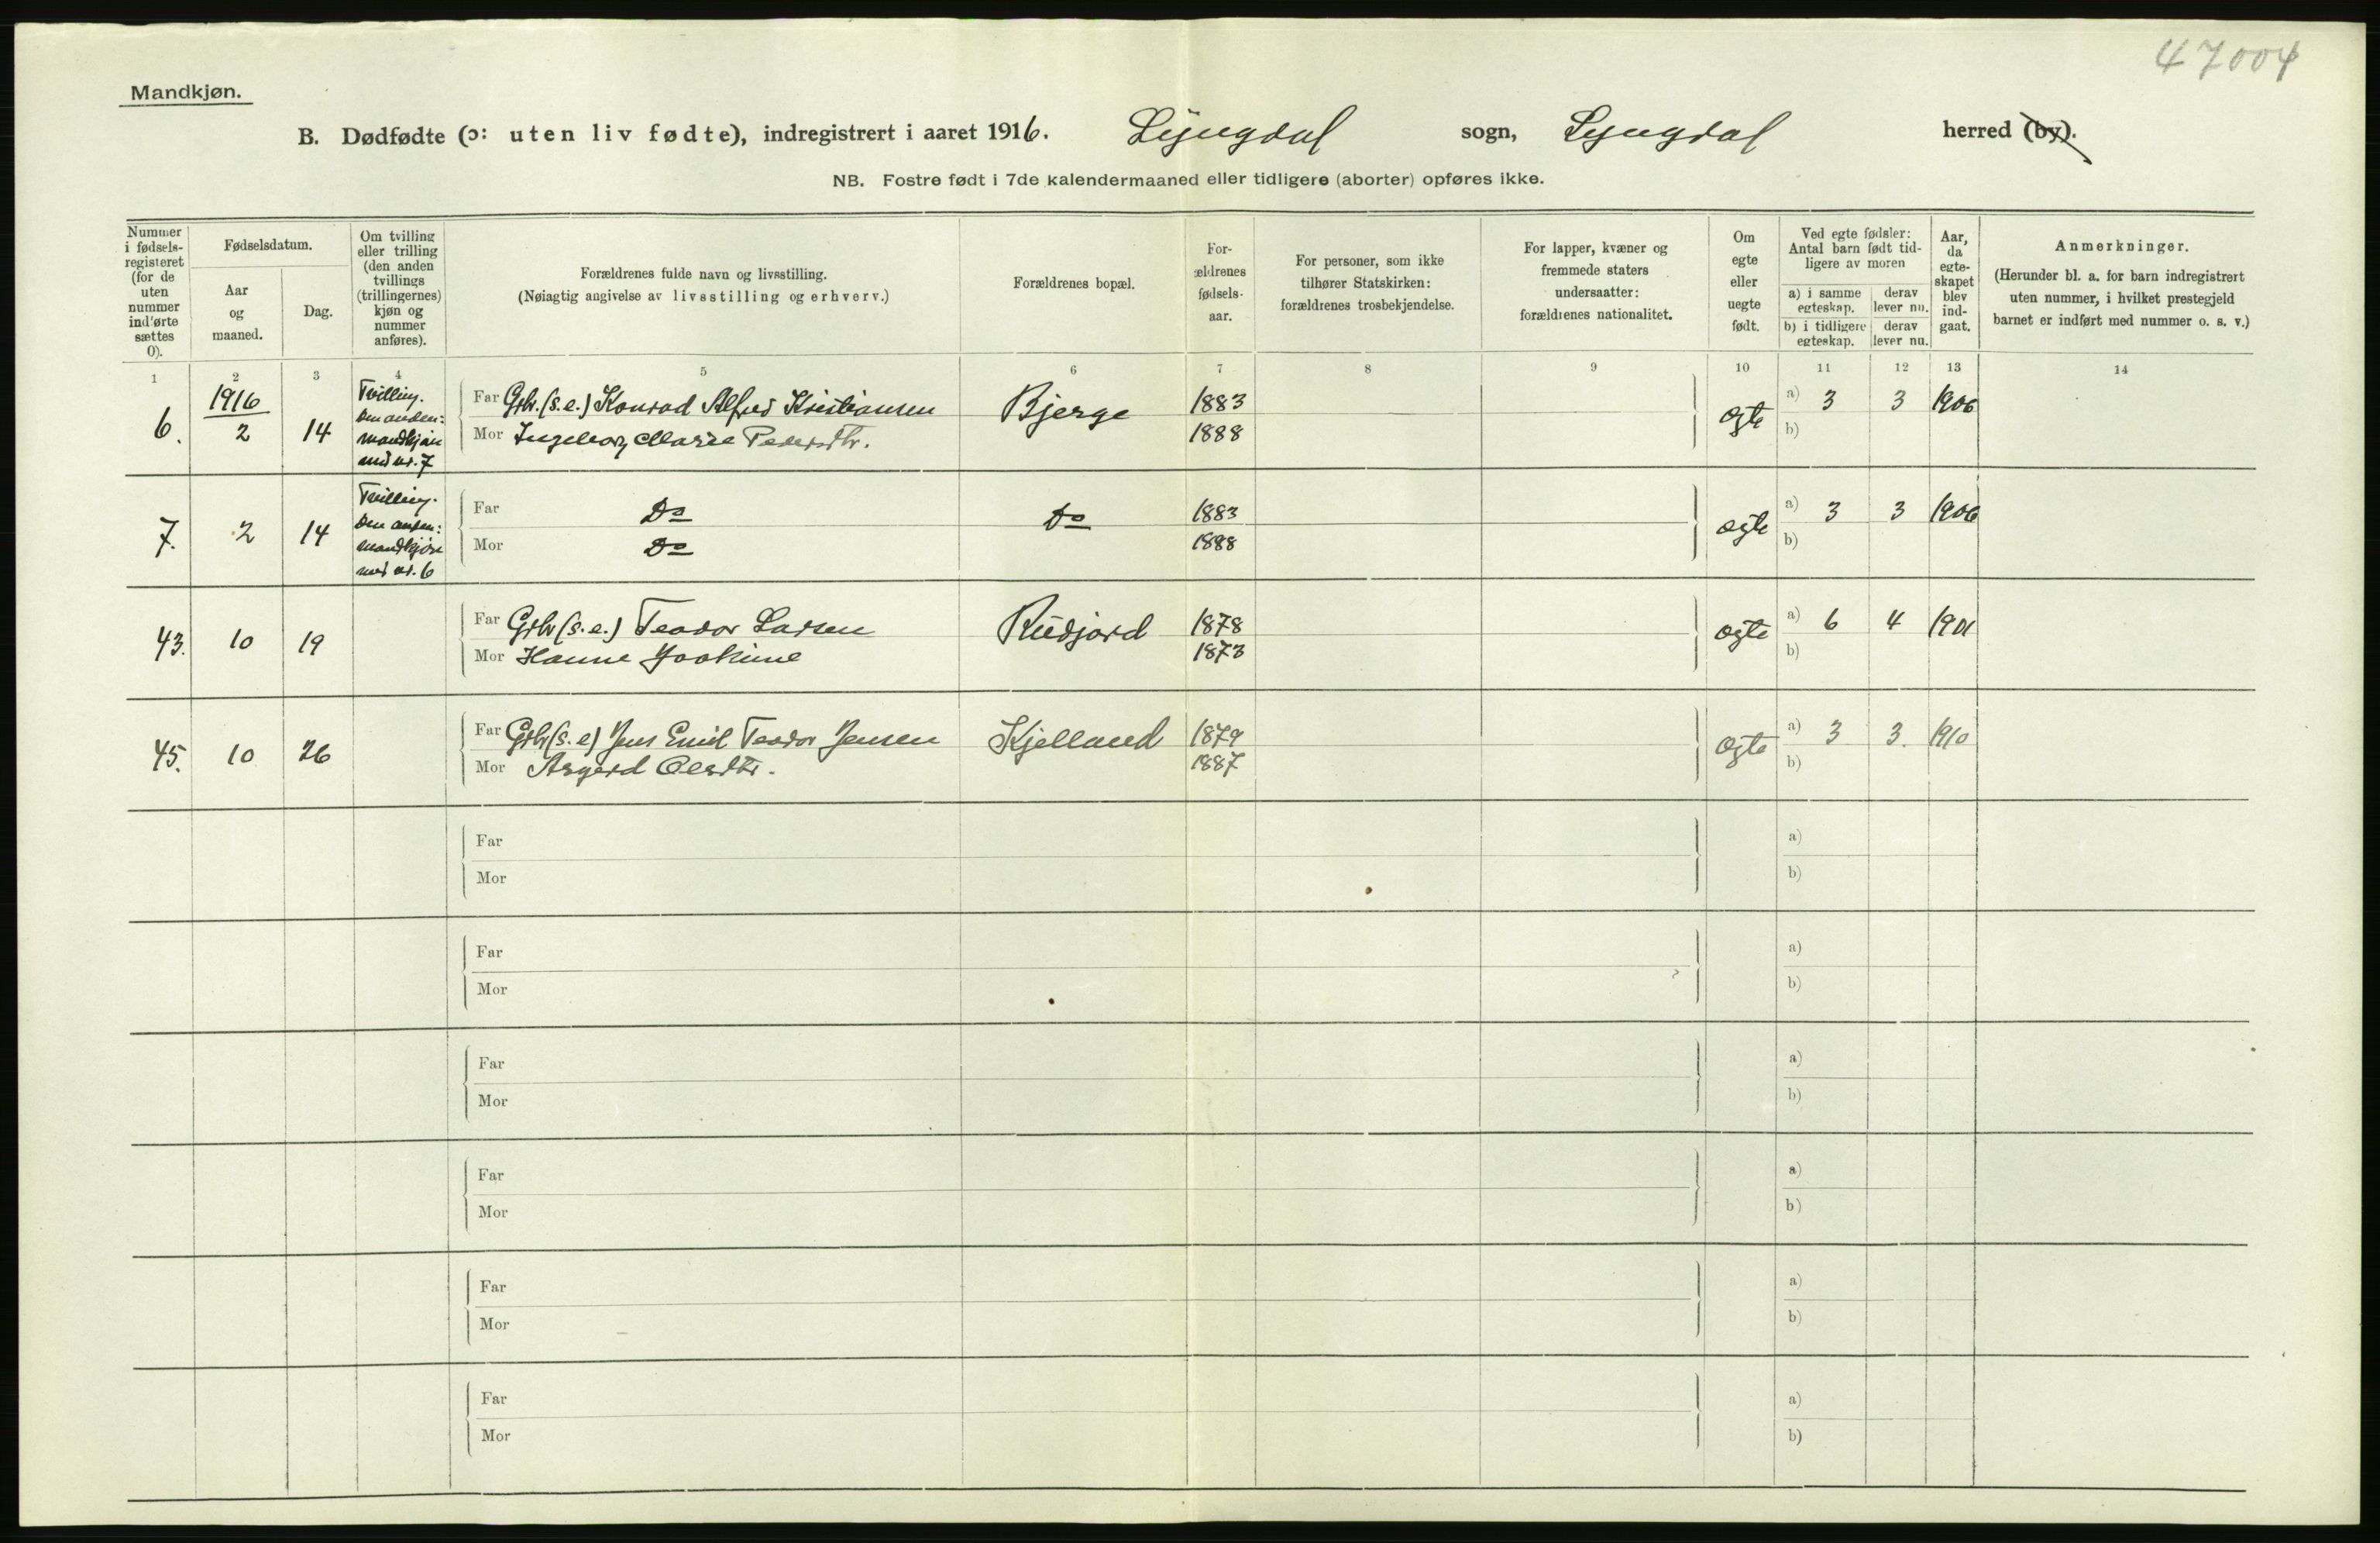 47004
Mandkjøn.
B. Dødfødte (ɔ: uten liv fødte), indregistrert i aaret 1916. Lyngdal sogn, Lyngdal herred (by).
NB. Fostre født i 7de kalendermaaned eller tidligere (aborter) opføres ikke.
Nummer i fødsels-registeret (for de uten nummer indførte sættes 0).
Fødselsdatum.
Aar og maaned.
Dag.
Om tvilling eller trilling (den anden tvillings (trillingernes) kjøn og nummer anføres).
Forældrenes fulde navn og livsstilling.
(Nøiagtig angivelse av livsstilling og erhverv.)
Forældrenes bopæl.
For-ældrenes fødsels-aar.
For personer, som ikke tilhører Statskirken: forældrenes trosbekjendelse.
For lapper, kvæner og fremmede staters undersaatter: forældrenes nationalitet.
Om egte eller uegte født.
Ved egte fødsler: Antal barn født tid-ligere av moren
a) i samme egteskap. derav lever nu.
b) i tidligere egteskap. derav lever nu.
Aar, da egte-skapet blev ind-gaat.
Anmerkninger.
(Herunder bl. a. for barn indregistrert uten nummer, i hvilket prestegjeld barnet er indført med nummer o. s. v.)
1 2 3 4 5 6 7 8 9 10 11 12 13 14
1916
6. 2 14 Tvilling. Den anden: mandkjøn med nr. 7
Far Grbr. (s.e.) Konrad Alfred Kristiansen Bjerge 1883 egte a) 3 3 1906
Mor Ingeborg Marie Pedersdtr. 1888 b)
7. 2 14 Tvilling. Den anden: mandkjøn med nr. 6
Far Do Do 1883 egte a) 3 3 1906
Mor Do 1888 b)
43. 10 19 Far Grbr (s.e.) Teodor Larsen Rudjord 1878 egte a) 6 4 1901
Mor Hanne Joakime 1873 b)
45. 10 26 Far Grbr (s.e) Jens Emil Teodor Jensen Kjelland 1879 egte a) 3 3. 1910
Mor Asgerd Olesdtr. 1887 b)
Far a)
Mor b)
Far a)
Mor b)
Far a)
Mor b)
Far a)
Mor b)
Far a)
Mor b)
Far a)
Mor b)